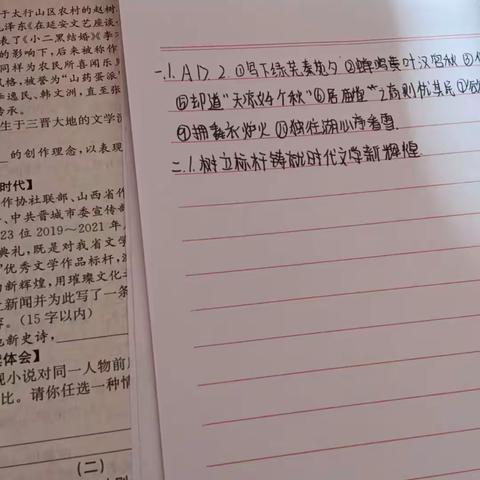 于太行山区农村的赵树
毛泽东《在延安文艺座谈
表了《小二黑结婚》《李
的影响下，后来被称作
同样为农民所喜闻乐
风格，被誉为“山药蛋派”
韩文洲，直至张
传承。
生于三晋大地的文学
的创作理念，以表现
时代】
作协社联部、山西省作
中共晋城市委宣传部
23 位 2019～2021 年
典礼，既是对我省文学
优秀文学作品标杆，
新辉煌，用璀璨文化
新闻并为此写了一条
。（15 字以内）
新史诗，
体会】
现小说对同一人物前
比。请你任选一种情
（二）
一.1.AD 2 ①下绿芜秦苑夕 ②蝉鸣黄叶汉宫秋 ③
⑤却道“天凉好个秋” ⑥居庙堂之高则忧其民 ⑦
⑨拥毳衣炉火 ⑩独往湖心亭看雪.
二.1.树立标杆铸就时代文学新辉煌